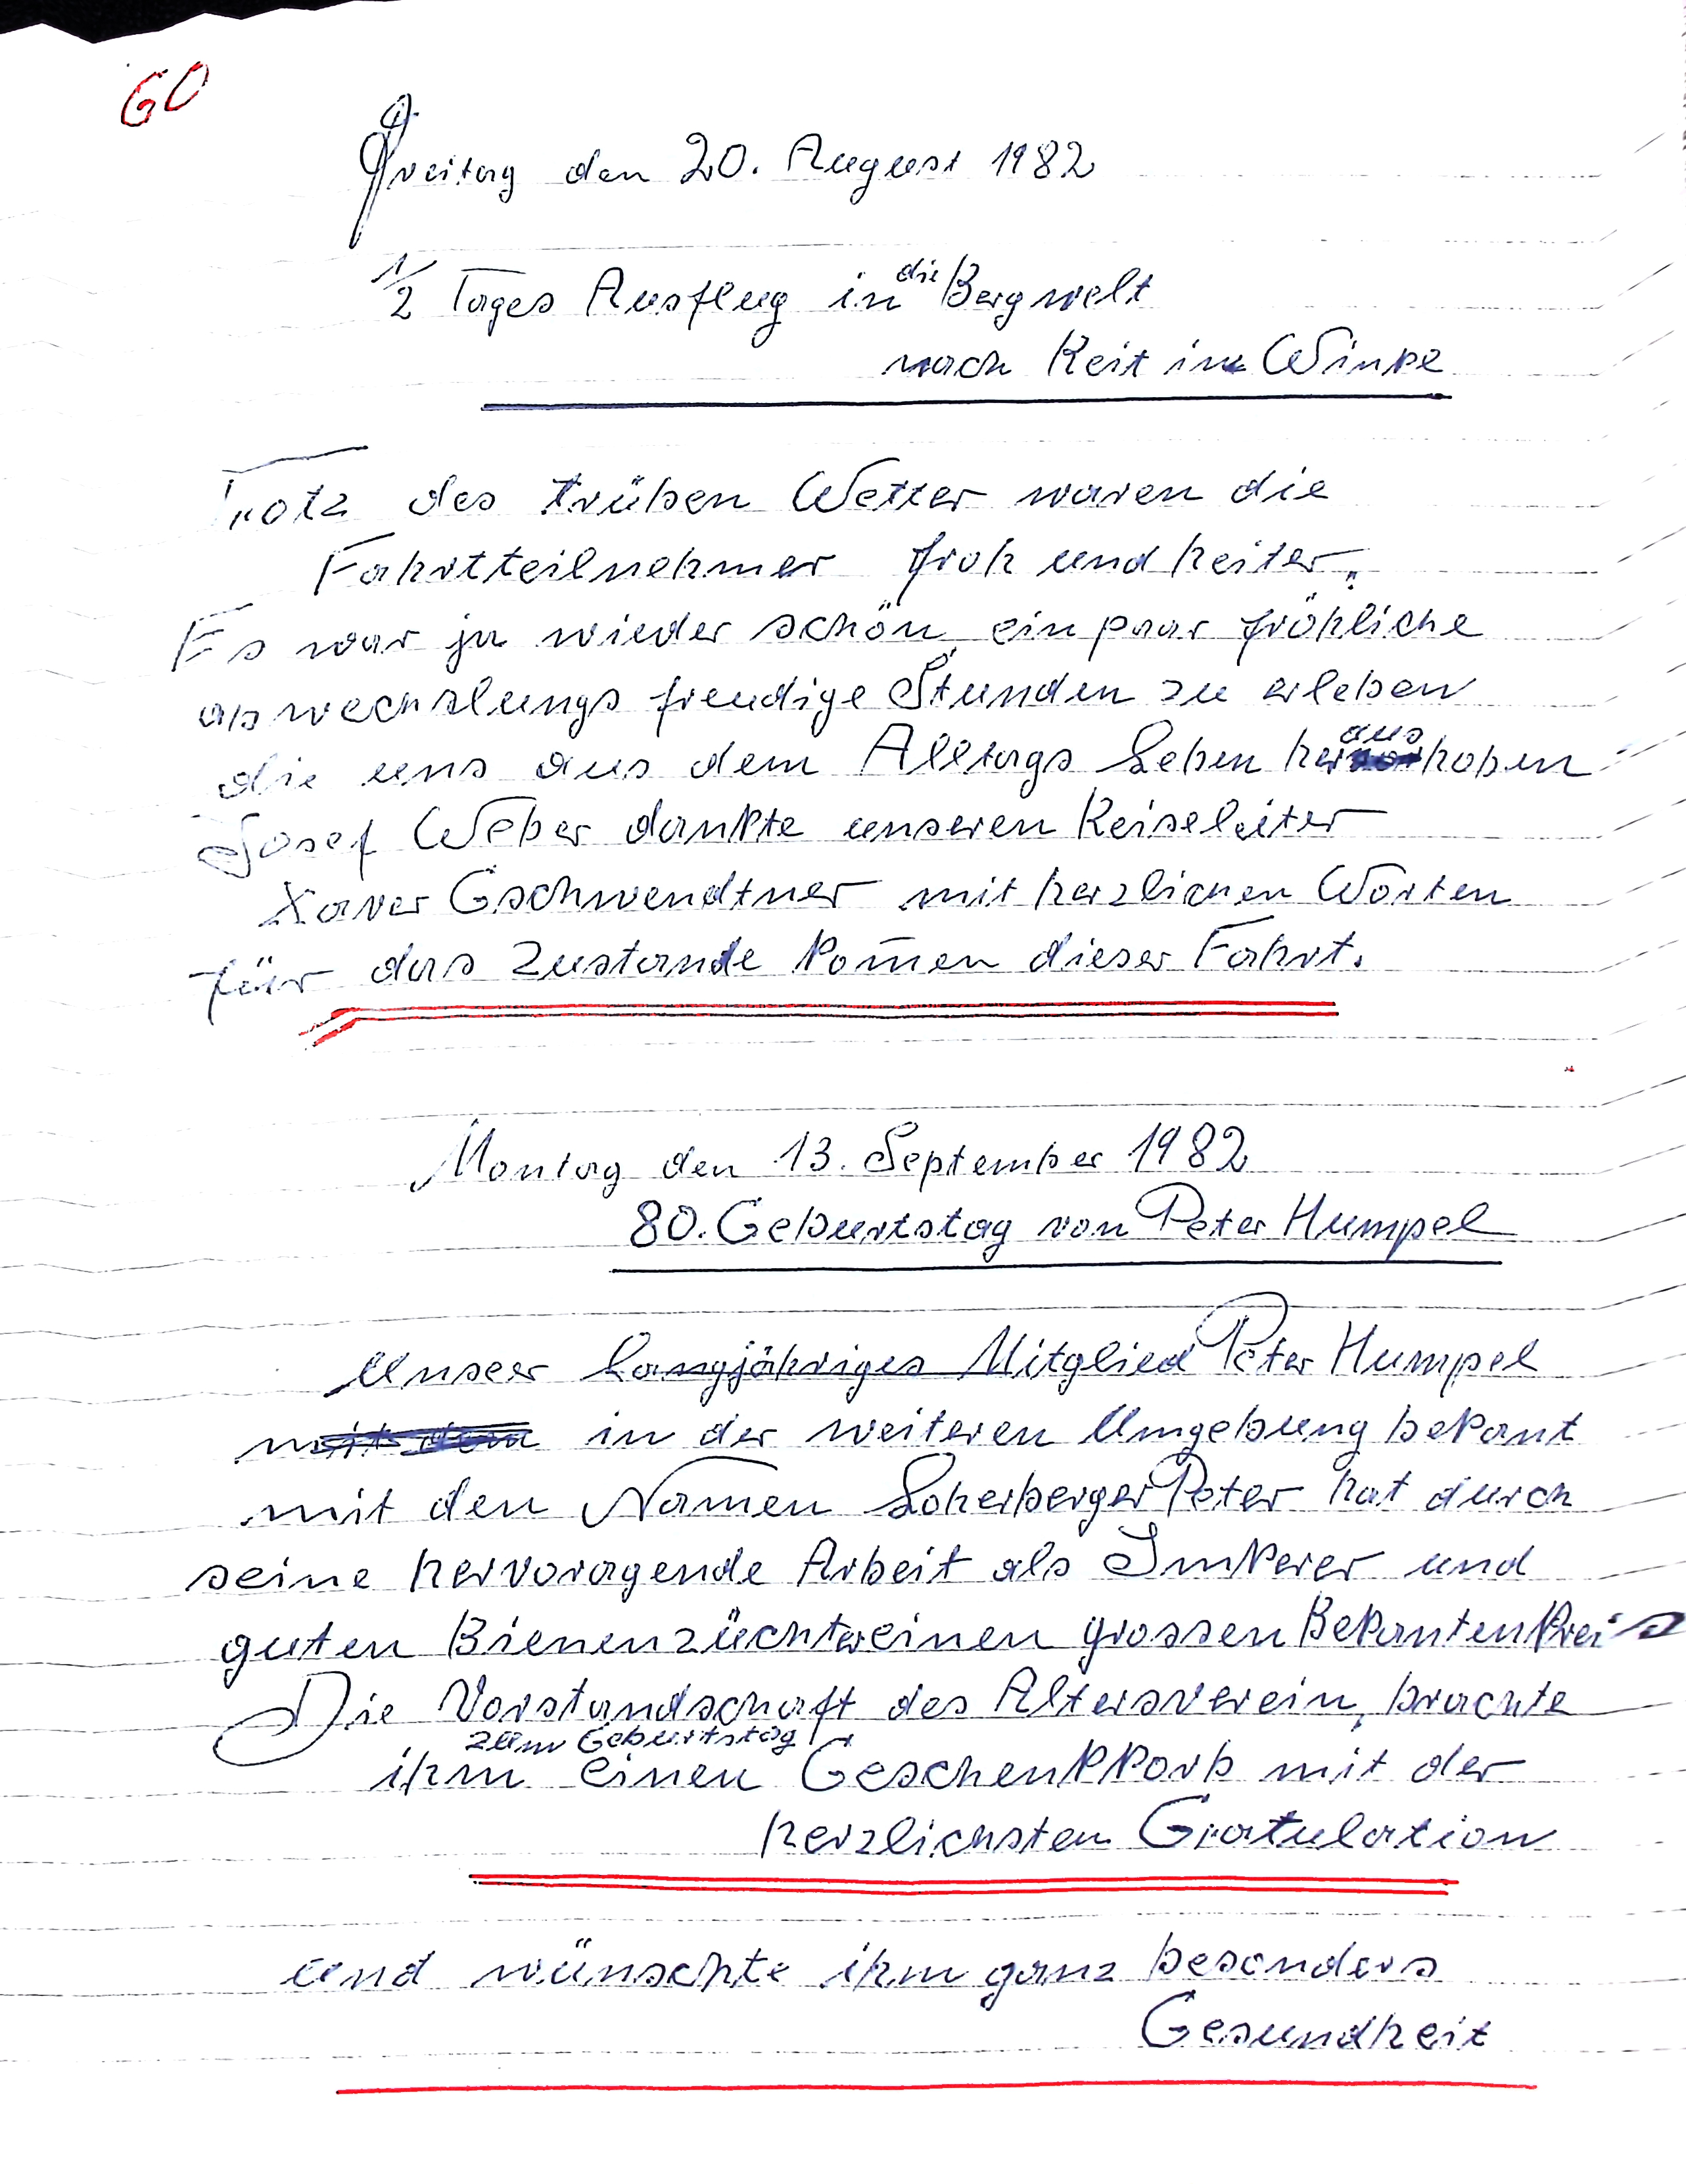 60
Freitag den 20. August 1982
1/2 Tages Ausflug in die Bergwelt
nach Reit im Winke
Trotz des trüben Wetter waren die
Fahrtteilnehmer froh und heiter.
Es war ja wieder schön, ein paar fröhliche
abwechslungs freudige Stunden zu erleben
die uns aus dem Alltags Leben heraushoben
Josef Weber dankte unseren Reiseleiter
Xaver Gschwendtner mit herzlichen Worten
für das Zustande kom̅en dieser Fahrt.
Montag den 13. September 1982
80. Geburtstag von Peter Humpel
Unser langjähriges Mitglied Peter Humpel
mit dem in der weiteren Umgebung bekant
mit den Namen Loherberger Peter hat durch
seine hervoragende Arbeit als Imkerer und
guten Bienenzüchter einen grossen Bekantenkreis
Die Vorstandschaft des Altersverein, brachte
zum Geburtstag
ihm einen Geschenkkorb mit der
herzlichsten Gratulation
und wünschte ihm ganz besonders
Gesundheit